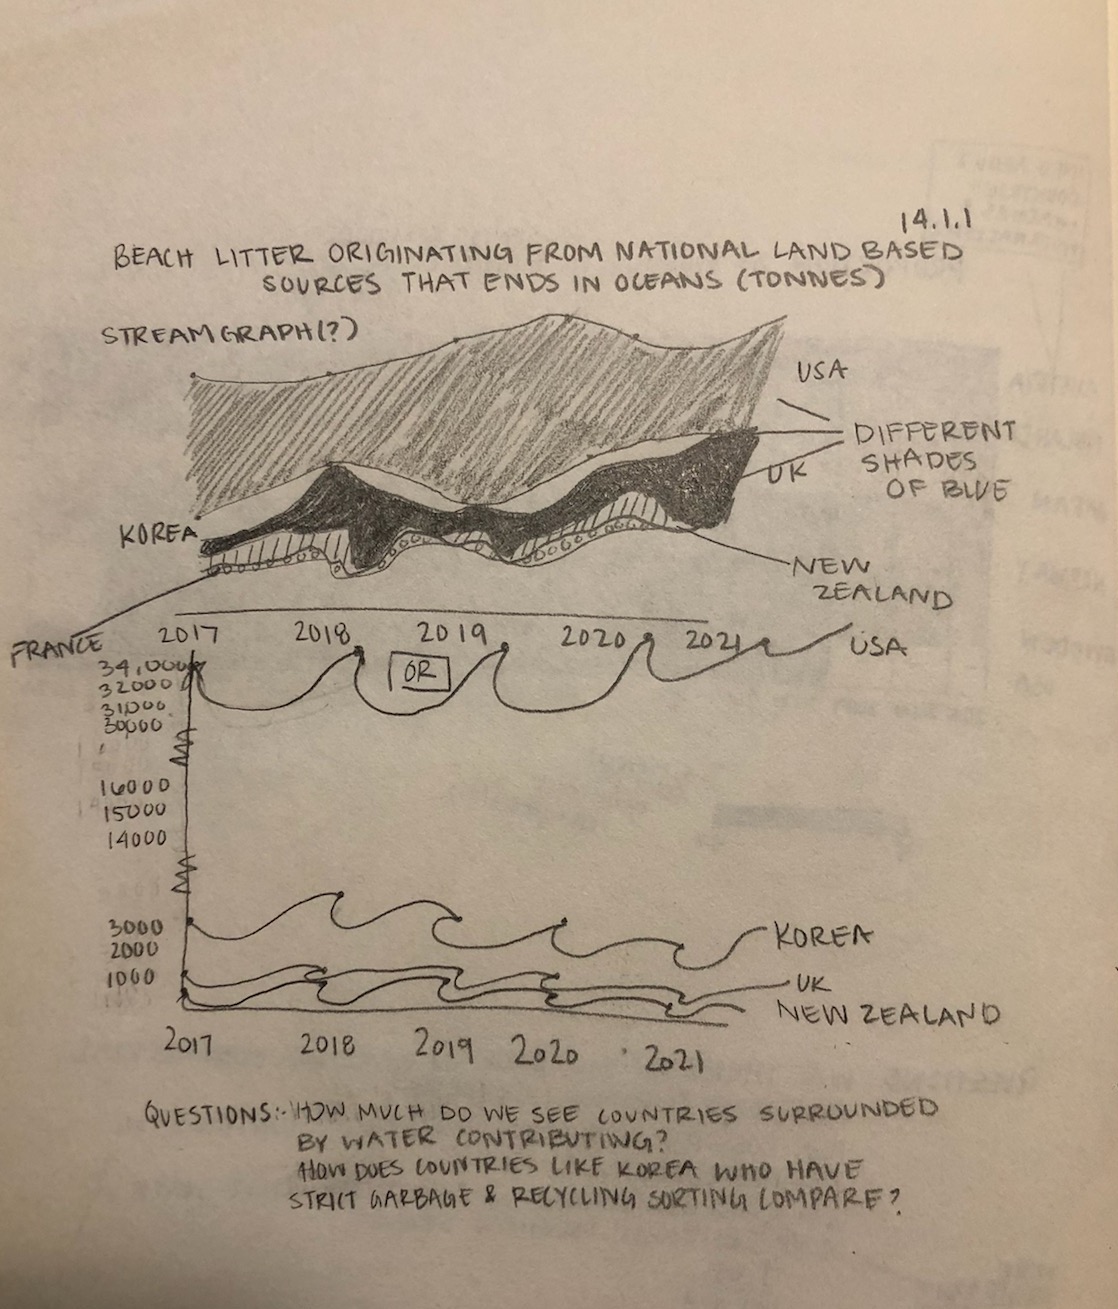 14.1.1
BEACH LITTER ORIGINATING FROM NATIONAL LAND BASED
SOURCES THAT ENDS IN OCEANS (TONNES)
STREAMGRAPH(?)
USA
DIFFERENT
SHADES
OF BLUE
UK
KOREA
NEW
ZEALAND
FRANCE
2017 2018 2019 2020 2021
USA
OR
34,000
32000
31,000
30,000
16000
15000
14000
3000
2000
1000
KOREA
UK
NEW ZEALAND
2017 2018 2019 2020 2021
QUESTIONS:- HOW MUCH DO WE SEE COUNTRIES SURROUNDED
BY WATER CONTRIBUTING?
HOW DOES COUNTRIES LIKE KOREA WHO HAVE
STRICT GARBAGE & RECYCLING SORTING COMPARE?